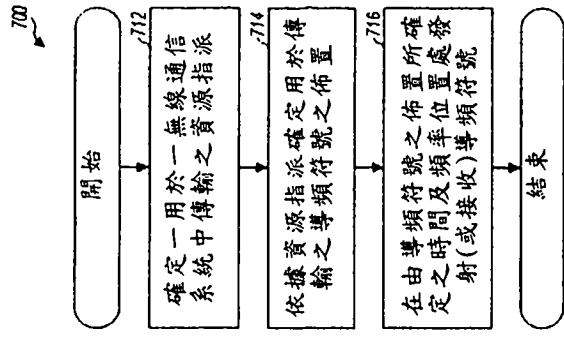 700
開始
712
確定一用於一無線通信
系統中傳輸之資源指派
714
依據資源指派確定用於傳
輸之導頻符號之佈置
716
在由導頻符號之佈置所確
定之時間及頻率位置處發
射(或接收)導頻符號
結束